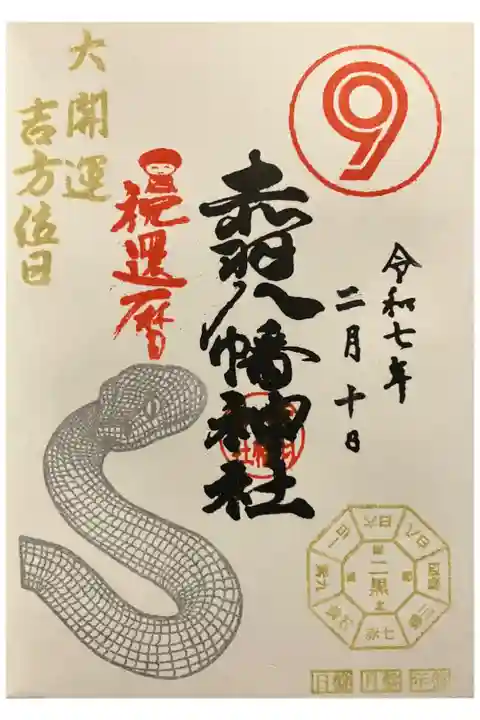 ⑨
令和七年
二月十日
赤羽八幡神社
祝還暦
大開運
吉方位日
二黒